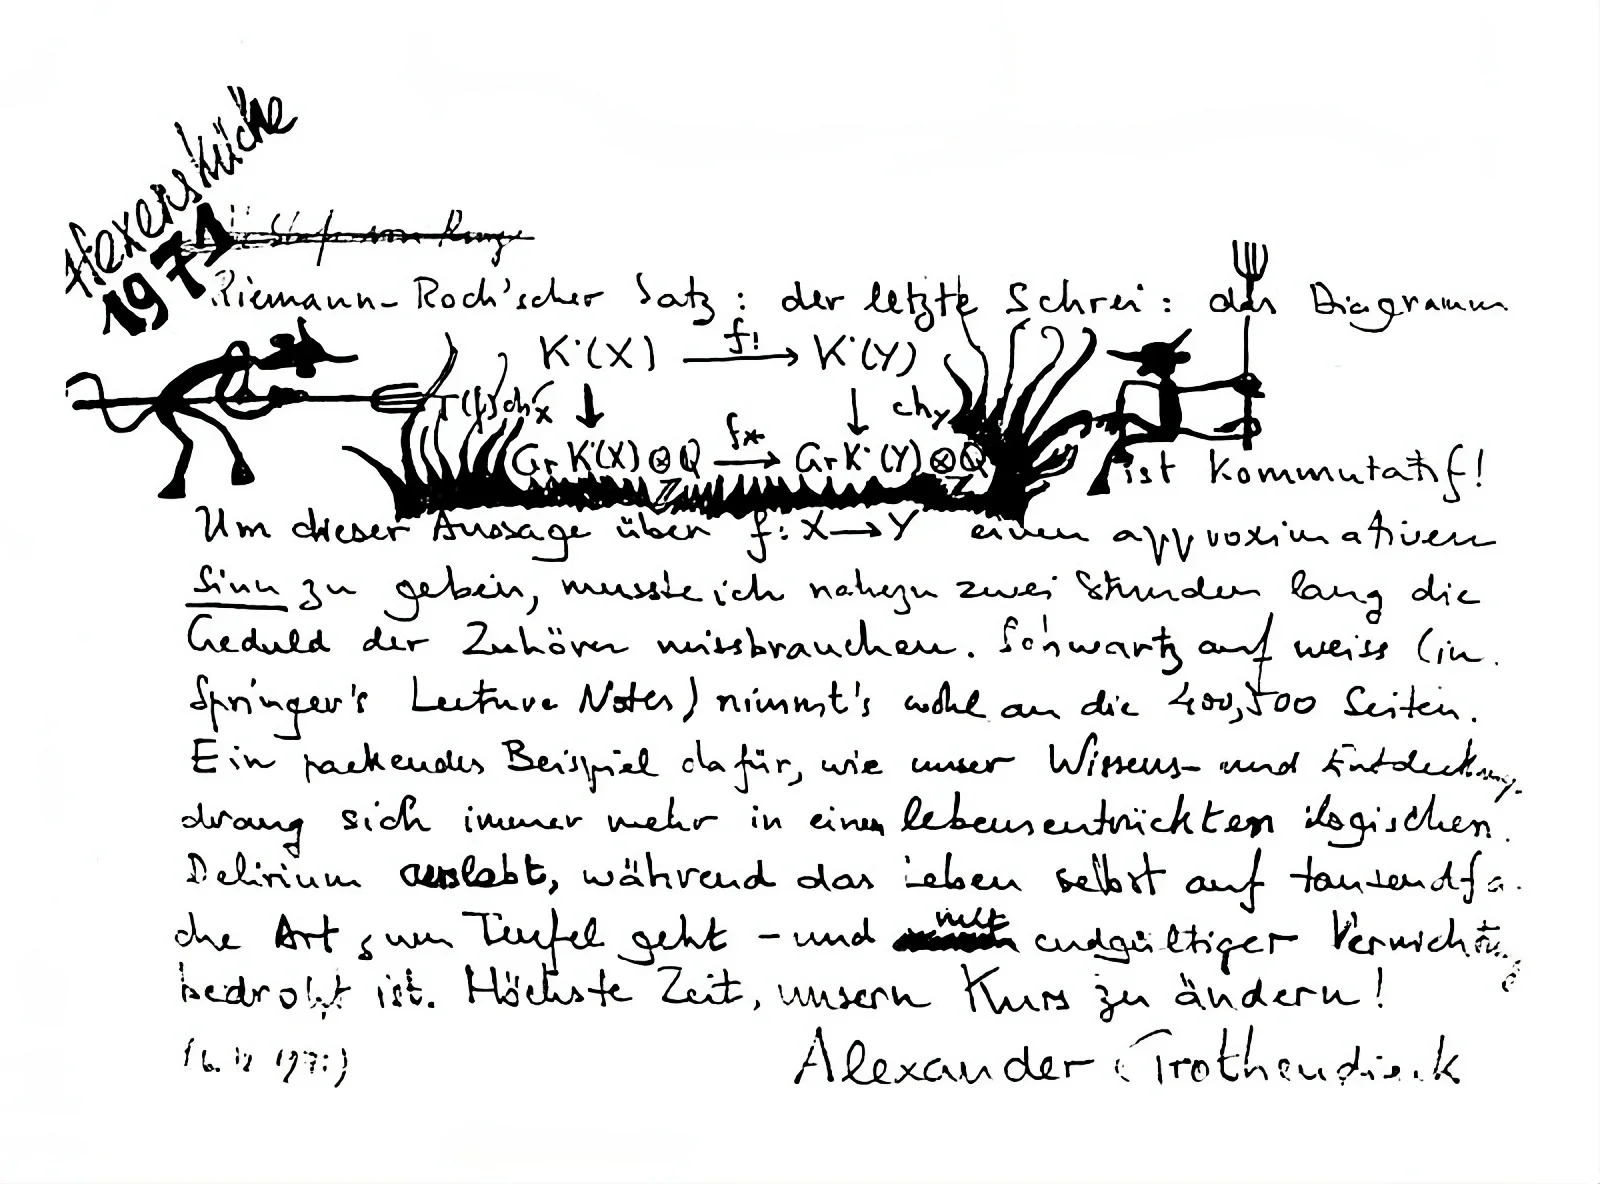 Hexenküche
1971
Riemann-Roch'scher Satz: der letzte Schrei: das Diagramm
K˙(X) f! → K˙(Y)
T(f)chₓ ↓ ↓ chY
Gr K˙(X)⊗Q f* → Gr K˙(Y)⊗Q
Z Z
ist kommutatif!
Um dieser Aussage über f: X → Y einen approximativen
Sinn zu geben, musste ich nahezu zwei Stunden lang die
Geduld der Zuhörer missbrauchen. Schwartz auf weiss (in
Springer's Lecture Notes) nimmt's wohl an die 400, 500 Seiten.
Ein packendes Beispiel dafür, wie unser Wissens- und Entdeckungs-
drang sich immer mehr in einem lebensentrückten logischen
Delirium auslebt, während das Leben selbst auf tausendfa-
che Art zum Teufel geht – und mit endgültiger Vernichtung
bedroht ist. Höchste Zeit, unsern Kurs zu ändern!
Alexander Grothendieck